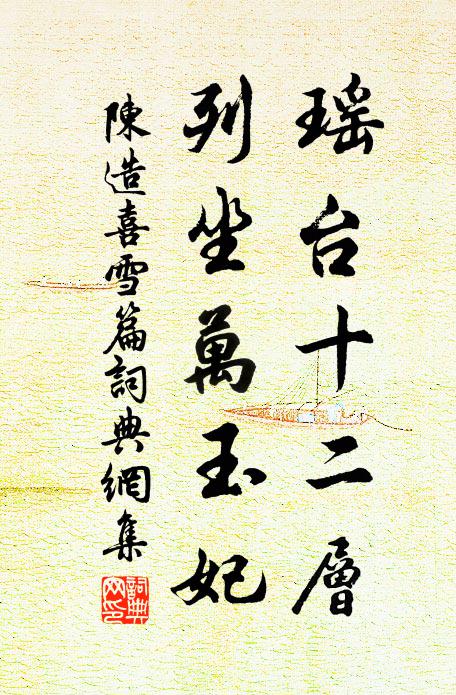 瑶台十二層
列坐萬玉妃
陳造喜雪篇詞典網集
詞典网印